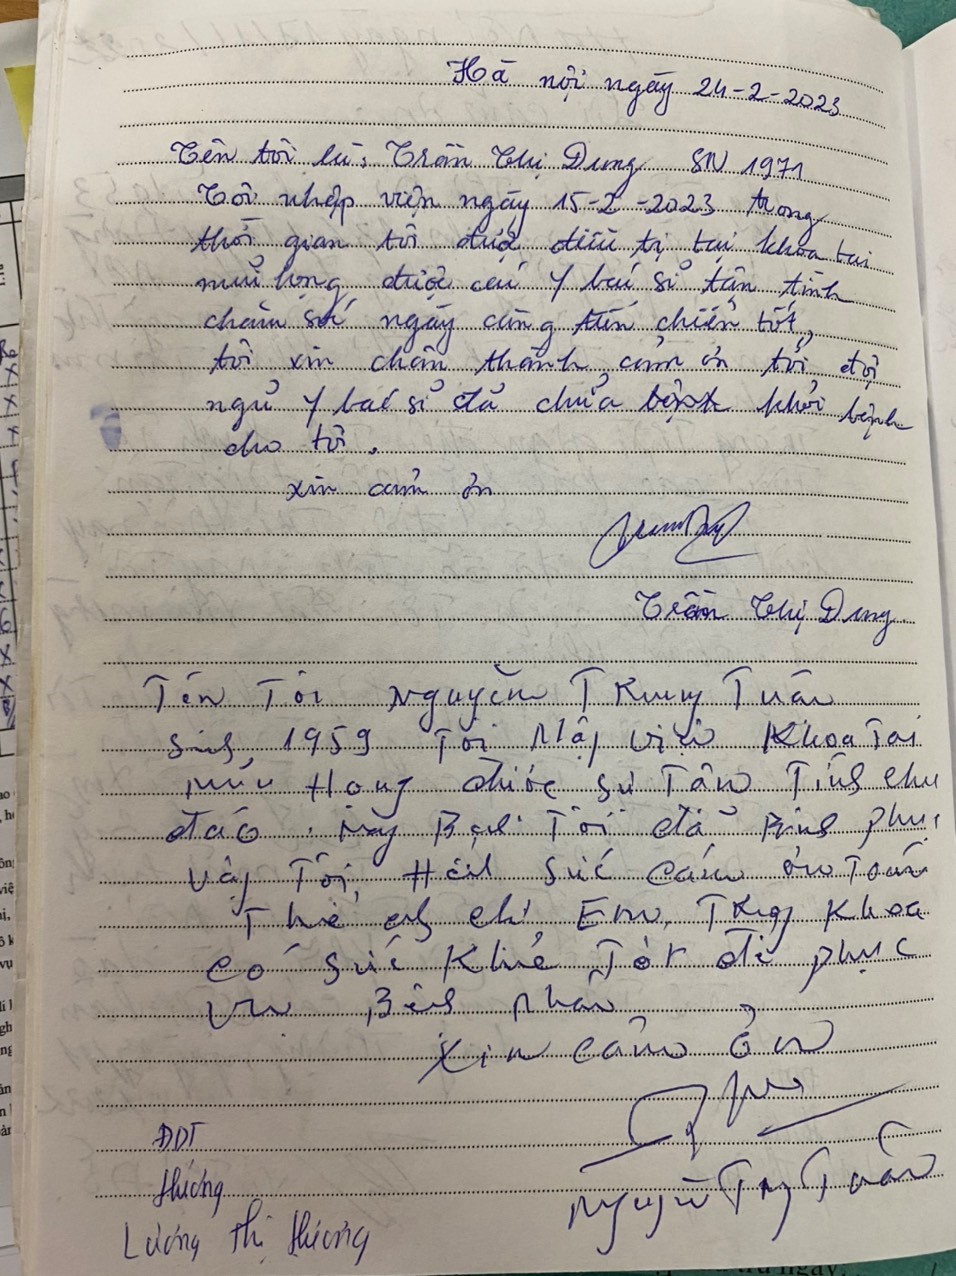 Hà nội ngày 24-2-2023
Tên tôi là: Trần Thị Dung SN 1971
Tôi nhập viện ngày 15-2-2023 trong
thời gian tôi được điều trị tại khoa tai
mũi họng được cá y bác sĩ tận tình
chăm số ngày càng tiến chiển tốt,
tôi xin chân thành cảm ơn tới đội
ngũ y bác sĩ đã chữa bệnh khỏi bệnh
cho tôi.
xin cảm ơn
Trần Thị Dung
Tên Tôi Nguyễn TRung Tuấn
Sinh 1959 Tôi Nhập viện Khoa Tai
mũi Họng được sự Tân Tình chu
đáo. Bệnh Tôi đã Bình phục
Vậy Tôi Hết sức cám ơn Toàn
Thể anh chị Em, TRong Khoa
có sức Khỏe Tốt để phục
vụ Bệnh nhân
Xin cảm ơn
Nguyễn Trg Tuấn
ĐDT
Hương
Lương Thị Hương